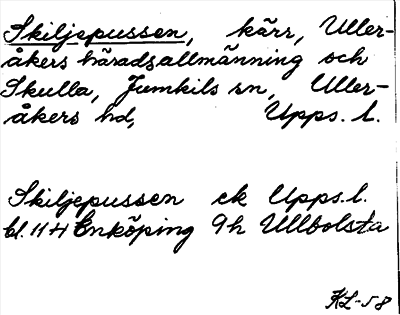 Skiljepussen, kärr, Uller-
åkers häradsallmänning och
Skulla, Jumkils sn, Uller-
åkers hd, Upps. l.
Skiljepussen ek Upps. l.
bl. 11 H Enköping 9h Ullbolsta
KL-58